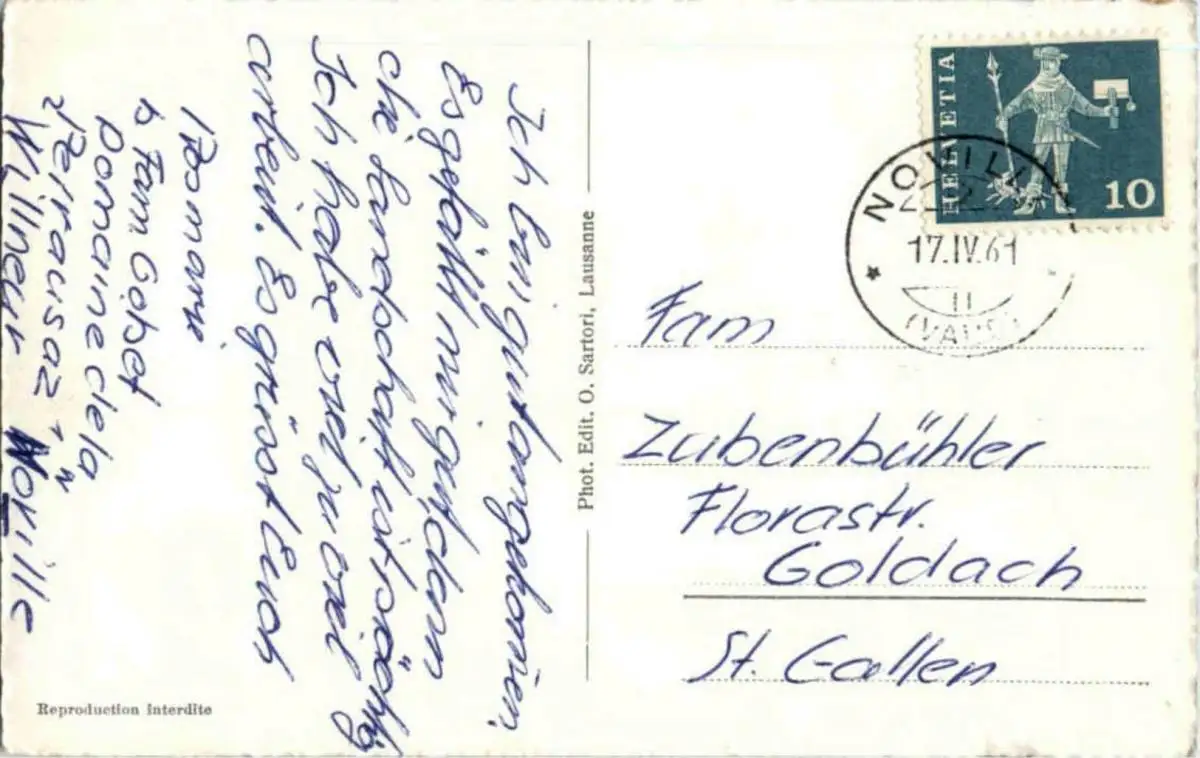 Ich bin gut angekomen.
Es gefällt mir gut, denn
die Landschaft ist schön
Ich habe viel zu viel
arbeit. Es grüsst Euch
Rosmarie
b Fam Gobet
Domaine de la
Perrausaz
Villneur Noville
Reproduction interdite
Phot. Edit. O. Sartori, Lausanne
HELVETIA
10
NOVILL
17.IV.61
(VAUD)
Fam
Zubenbühler
Florastr.
Goldach
St. Gallen